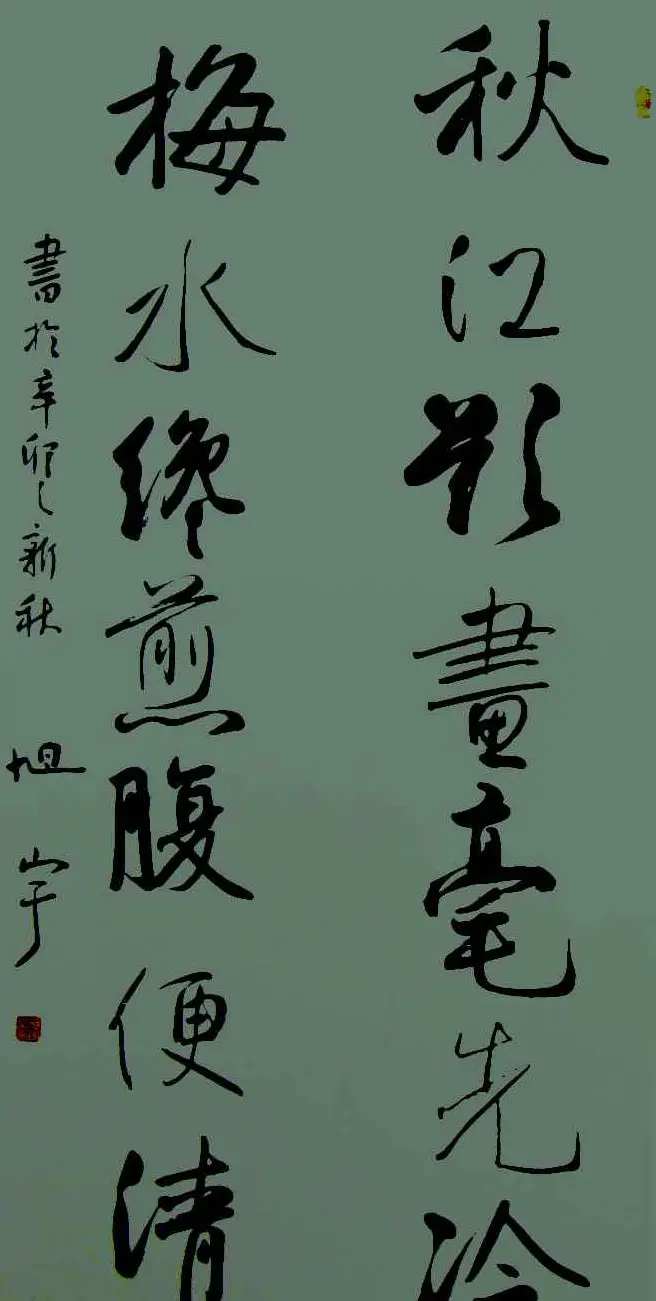 秋江欲畫毫先冷
梅水纔煎腹便清
書於辛卯之新秋
旭宇